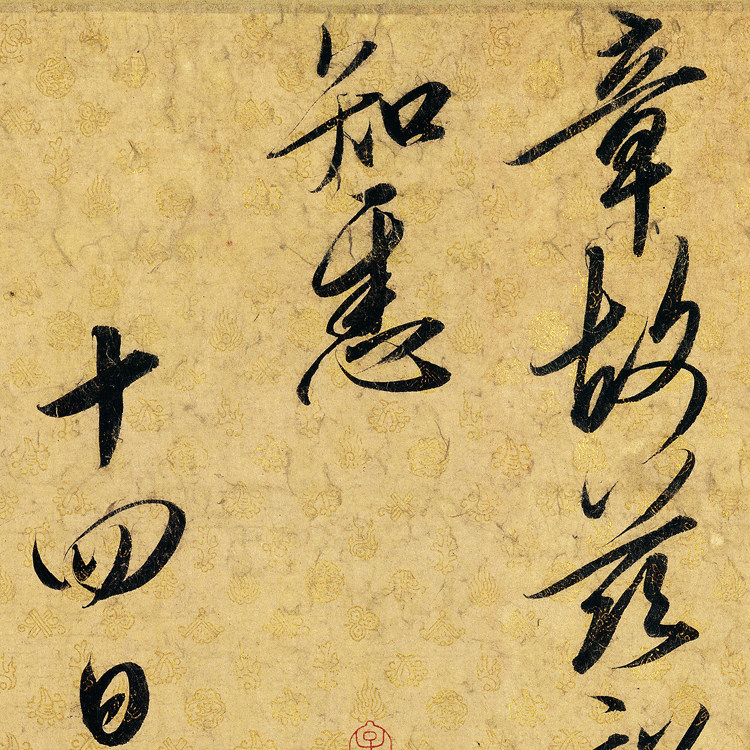 章故茲
知悉
十四日